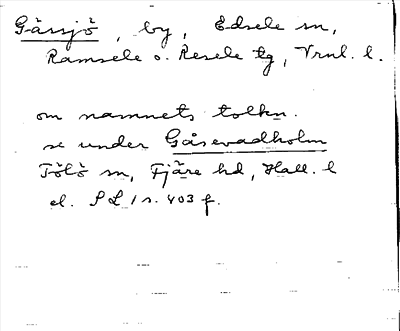 Gårsjö, by, Edsele sn,
Ramsele o. Resele tg, Vrnl. l.
om namnets tolkn.
se under Gåsevadholm
Tölö sn, Fjäre hd, Hall. l
el. SL 1 s. 403 f.